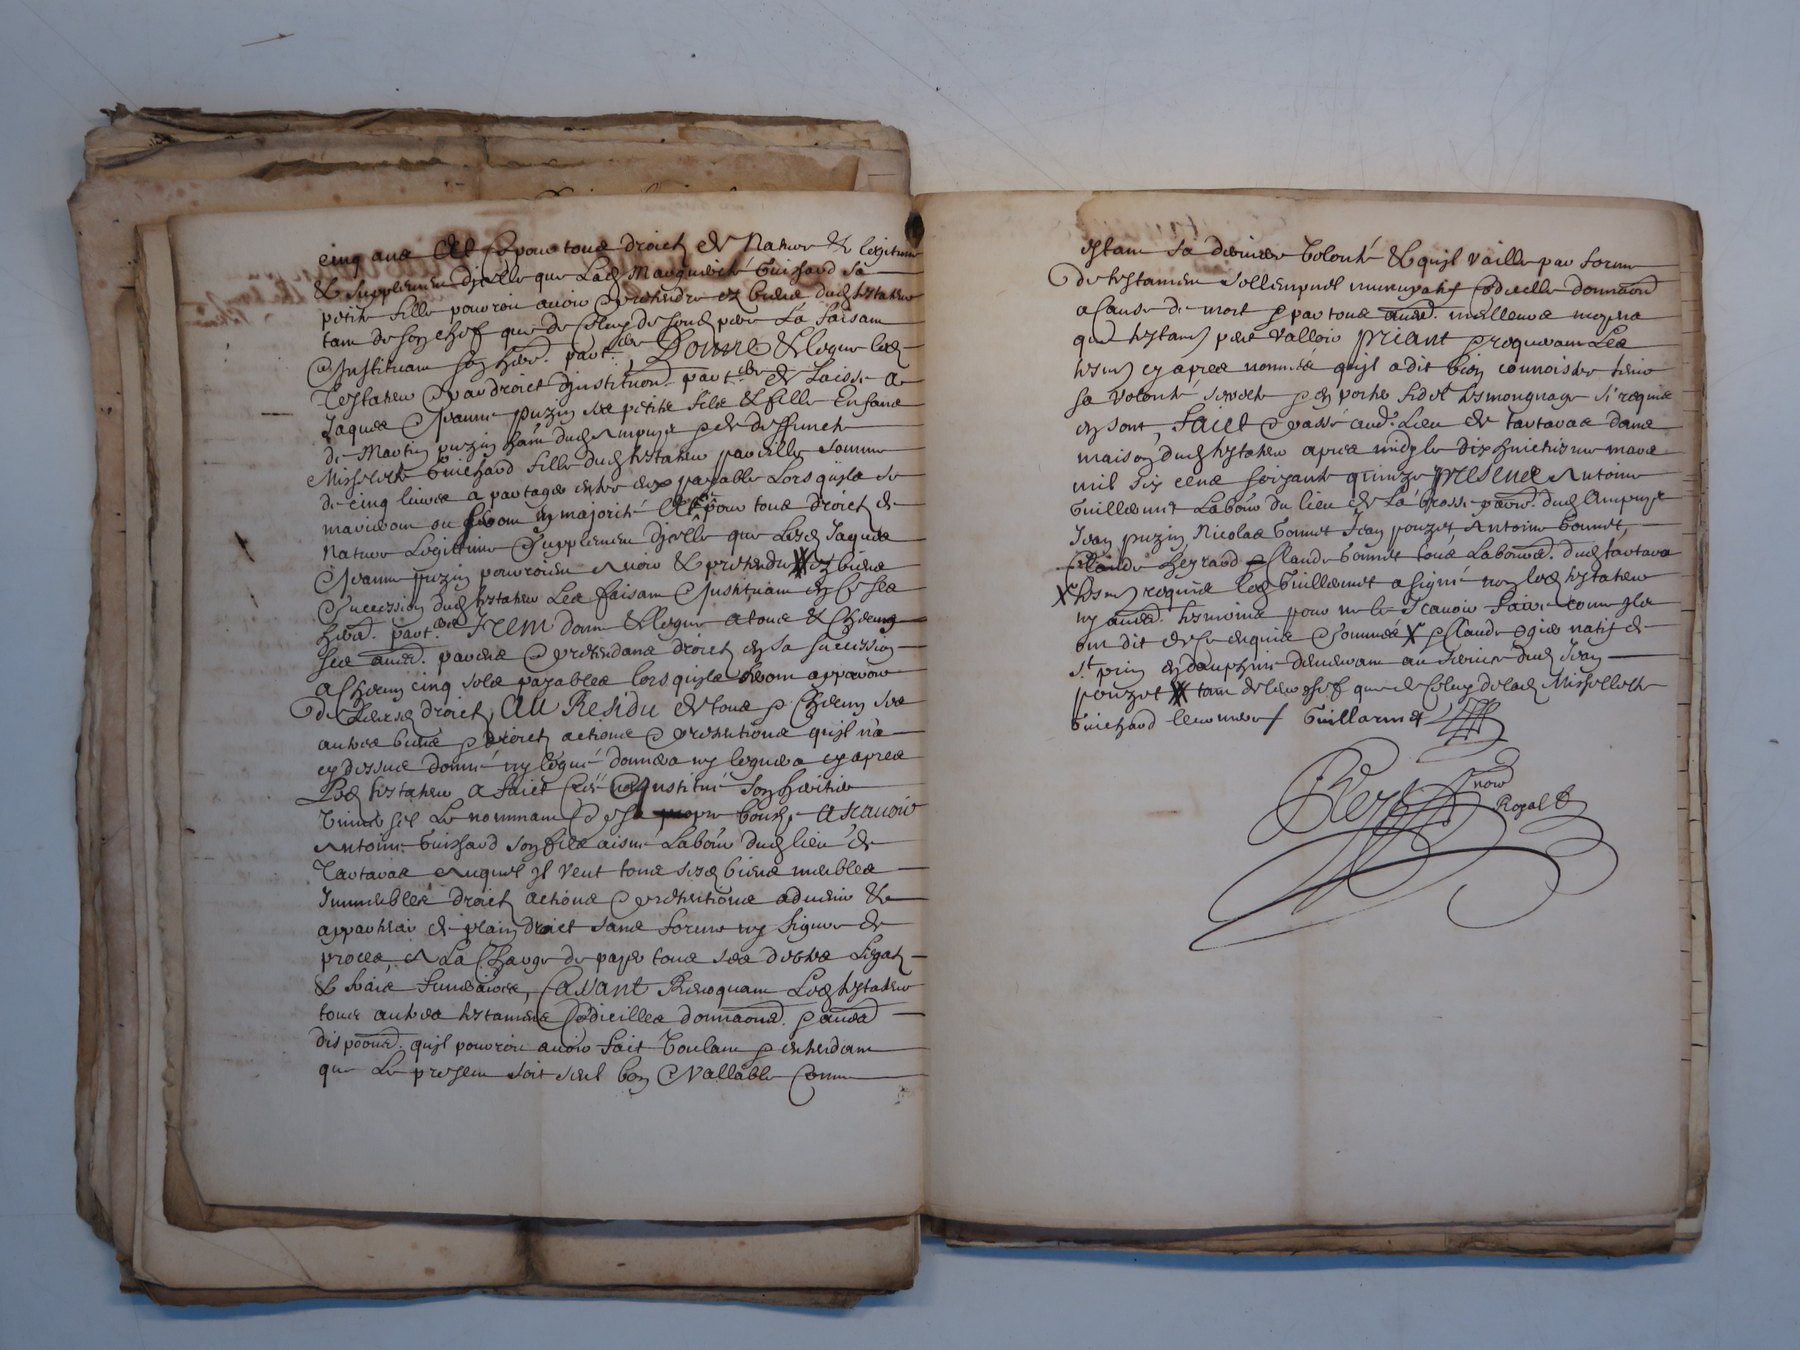 cinq ans Et ce pour tous droict de Nature & legitime
& supplement dicelle que Lad Marguerite Guichard sa
petite fille pourroit avoir & pretendre ez biens dud testateur
tant de son chef que de Celuy de soud pere La faisant
& Instituant son her. part. Donne & legue led
Testateur & par droict dinstitution part. & Laisse a
Jaques & Jeanne puzin ses petits fils & fille Enfans
de Martin puzin & de deffuncte
Guichard fille dud testateur pareille somme
de cinq livres a partager entre eux payable Lors quils se
marieront ou seront en majorité Et pour tous droict de
Nature Legitime & supplement dicelle que Lesd Jaques
& Jeanne puzin pourroient avoir & pretendre X ez biens &
Succession dud testateur Les faisant & Instituant en ce ses
her. part. Item donne & legue a tous & chacuns
ses autres parens & pretendans droict en sa succession
a chacun cinq sols payables lors quils feront apparoir
de Leursd droict, Au Residu de tous & chacuns ses
autres biens & droict actions & pretentions quil n'a
cy dessus donné ny legué donnera ny leguera cy apres
Led testateur a faict creé & institué son heritier
universel Le nommant de sa propre bouche Ascavoir
Antoine Guichard son fils aisné Labour dud lieu de
Tartaras Auquel il veut tous sesd biens meubles
Immeubles droict actions & pretentions advenir &
appartenir de plain droict sans forme ny figure de
proces A La Charge de payer tous ses debtes Legatz
& frais funeraires, Cassant Revoquant Led testateur
tous autres testamens Codicilles donnaons. & autres
dispoons. quil pourroit avoir fait Voulant & entendant
que Le present soit seul bon & Vallable Comme
estant sa derniere Volonté & quil vaille par forme
de testament sollempnel nuncupatif Codicille donnaon
a Cause de mort & par tous autres. meilleurs moyens
que testament peut Valloir Priant & requerant Les
tesm cy apres nommés quil a dit bien connoistre tenir
sa Volonté secrete & en porter fidel tesmoignage si requis
en sont, Faict & passé aud. Lieu de tartaras dans
maison dud testateur apres midy le dix huictiesme mars
mil six cens soixante quinze Presens Antoine
Guillermet Labour du lieu de La brosse parr. dud
Jean puzin Nicolas Bonnet Jean pouzet Antoine Bonnet,
Claude Peyraud & Claude Bonnet tous Labours. dud tartaras
X tesm requis led Guillermet a signé non led testateur
ny autres. tesmoins pour ne le Scavoir faire comme ils
ont dit de ce enquis & sommés X & Claude natif de
St prin en dauphiné demeurant au service dud Jean
pouzet X tant de leur chef que de Celuy de lad
Guichard leur mere / Guillarmet
Rey not
Royal